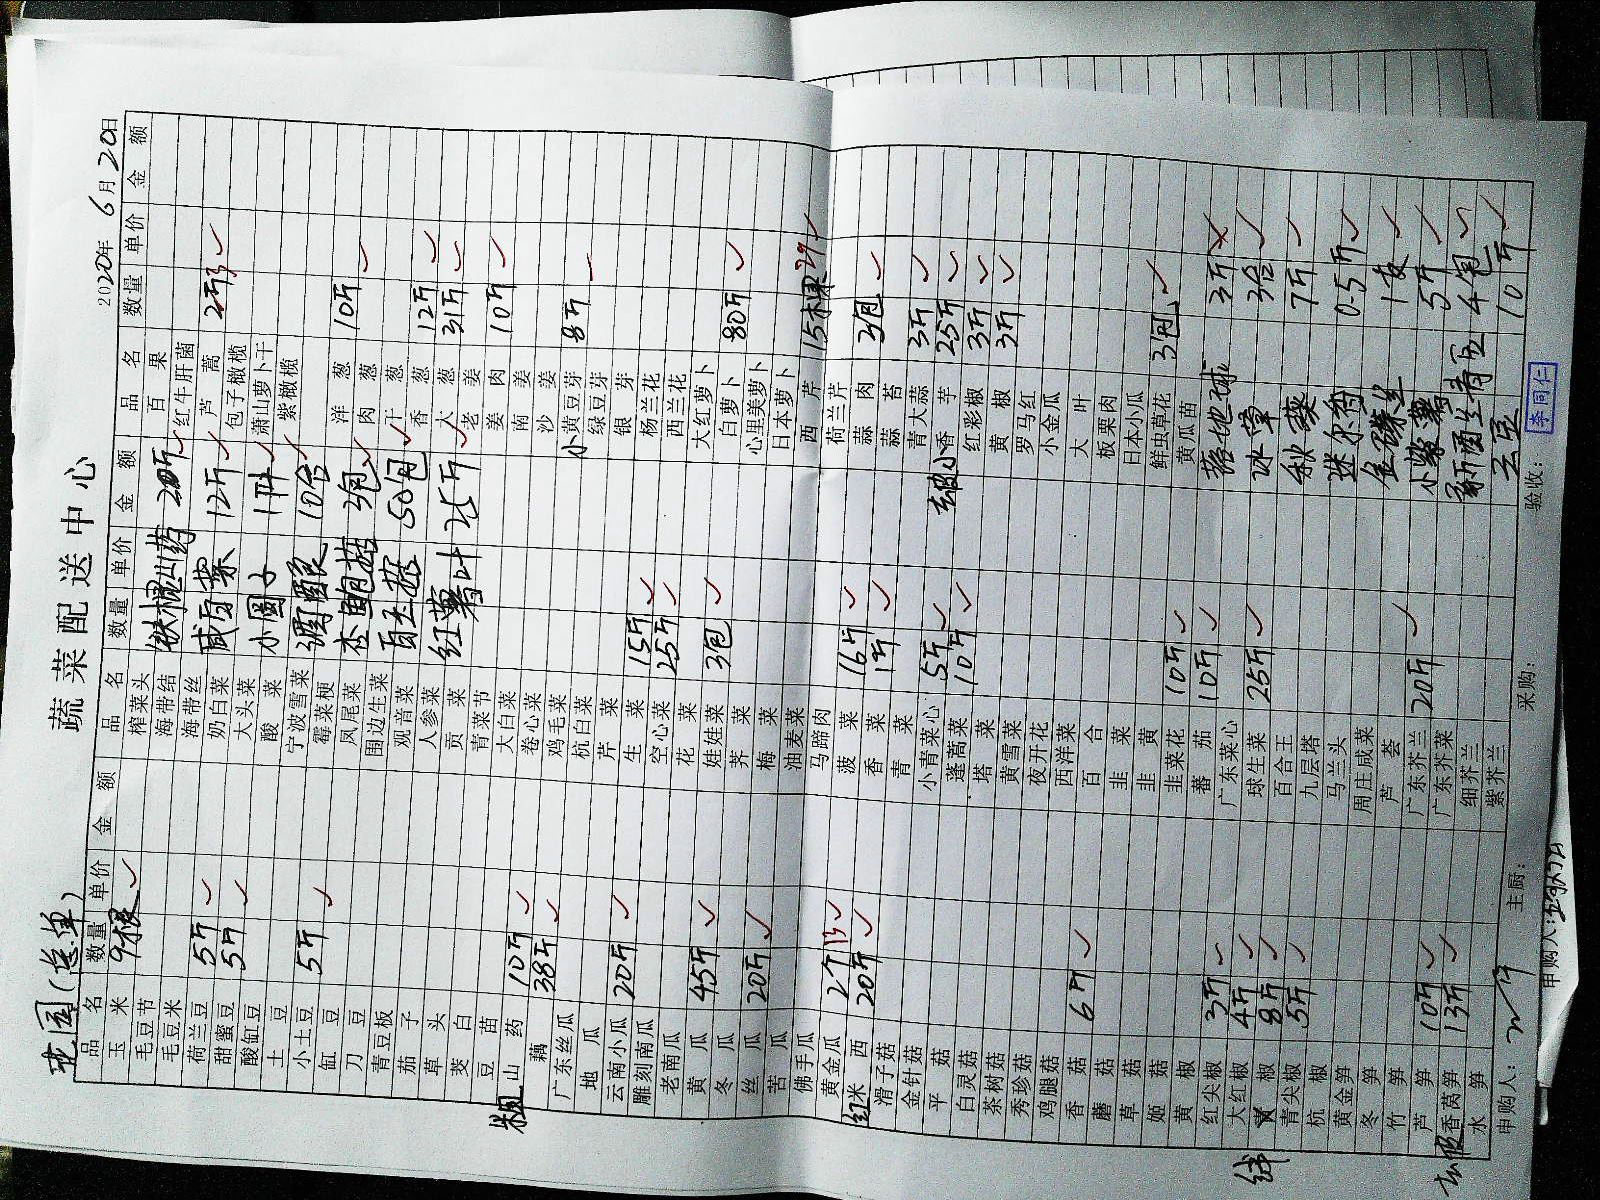 龙园(总单)
蔬菜配送中心
2020年6月20日
品名 数量 单价 金额
玉米 9根
毛豆节
毛豆米
荷兰豆 5斤
甜蜜豆 5斤
酸缸豆
土豆
小土豆 5斤
缸豆
刀豆
青豆板
茄子
草头
茭白
豆苗
粗山药 10斤
藕 38斤
广东丝瓜
地瓜
云南小瓜 20斤
雕刻南瓜
老南瓜
黄瓜 45斤
冬瓜
丝瓜 20斤
苦瓜
佛手瓜
黄金瓜 2个
红米西 20斤
滑子菇
金针菇
平菇
白灵菇
茶树菇
秀珍菇
鸡腿菇
香菇 6斤
蘑菇
草菇
姬菇
黄椒
红尖椒 3斤
大红椒 4斤
椒 8斤
青尖椒 5斤
杭椒
黄金笋
冬笋
竹笋
芦笋 10斤
香莴笋 13斤
水笋
品名 数量 单价 金额
榨菜头
海带结 铁棍山药 20斤
海带丝
奶白菜 咸白菜 12斤
大头菜
酸菜 小圆子 1件
宁波雪菜 调酿 10合
霉菜梗
凤尾菜 杏鲍菇 3包
围边生菜
观音菜 白玉菇 50包
人参菜
贡菜 红薯叶 25斤
青菜节
大白菜
卷心菜
鸡毛菜
杭白菜
芹菜
生菜 15斤
空心菜 25斤
花菜
娃娃菜 3包
荠菜
梅菜
油麦菜
马蹄肉
菠菜 16斤
香菜 1斤
青菜
小青菜心 5斤
蓬蒿菜 10斤
塔菜
黄雪菜
夜开花
西洋菜
百合
韭菜
韭黄
韭菜花 10斤
番茄 10斤
广东菜心
球生菜 25斤
百合王
九层塔
马兰头
周庄咸菜
芦荟
广东芥兰 20斤
广东芥菜
细芥兰
紫芥兰
品名 数量 单价 金额
百果
红牛肝菌
芦蒿 2斤
包子橄榄
萧山萝卜干
紫橄榄
洋葱 10斤
肉葱
干葱
香葱 12斤
大葱 31斤
老姜
姜肉 10斤
南姜
沙姜
小黄豆芽 8斤
绿豆芽
银芽
杨兰花
西兰花
大红萝卜
白萝卜 80斤
心里美萝卜
日本萝卜
西芹 15棵
荷兰芹
蒜肉 3包
蒜苔
青大蒜 3斤
小香芋 25斤
红彩椒 3斤
黄椒 3斤
罗马红
小金瓜
大叶
板栗肉
日本小瓜
鲜虫草花 3包
黄瓜苗
落地球 3斤
冰草 3合
秋葵 7斤
迷尔香 0.5斤
金瓣丝 1支
小紫薯 5斤
新西兰青豆 4包
云豆 10斤
申购人:
主厨:
采购:
验收: 李同仁
申购人: